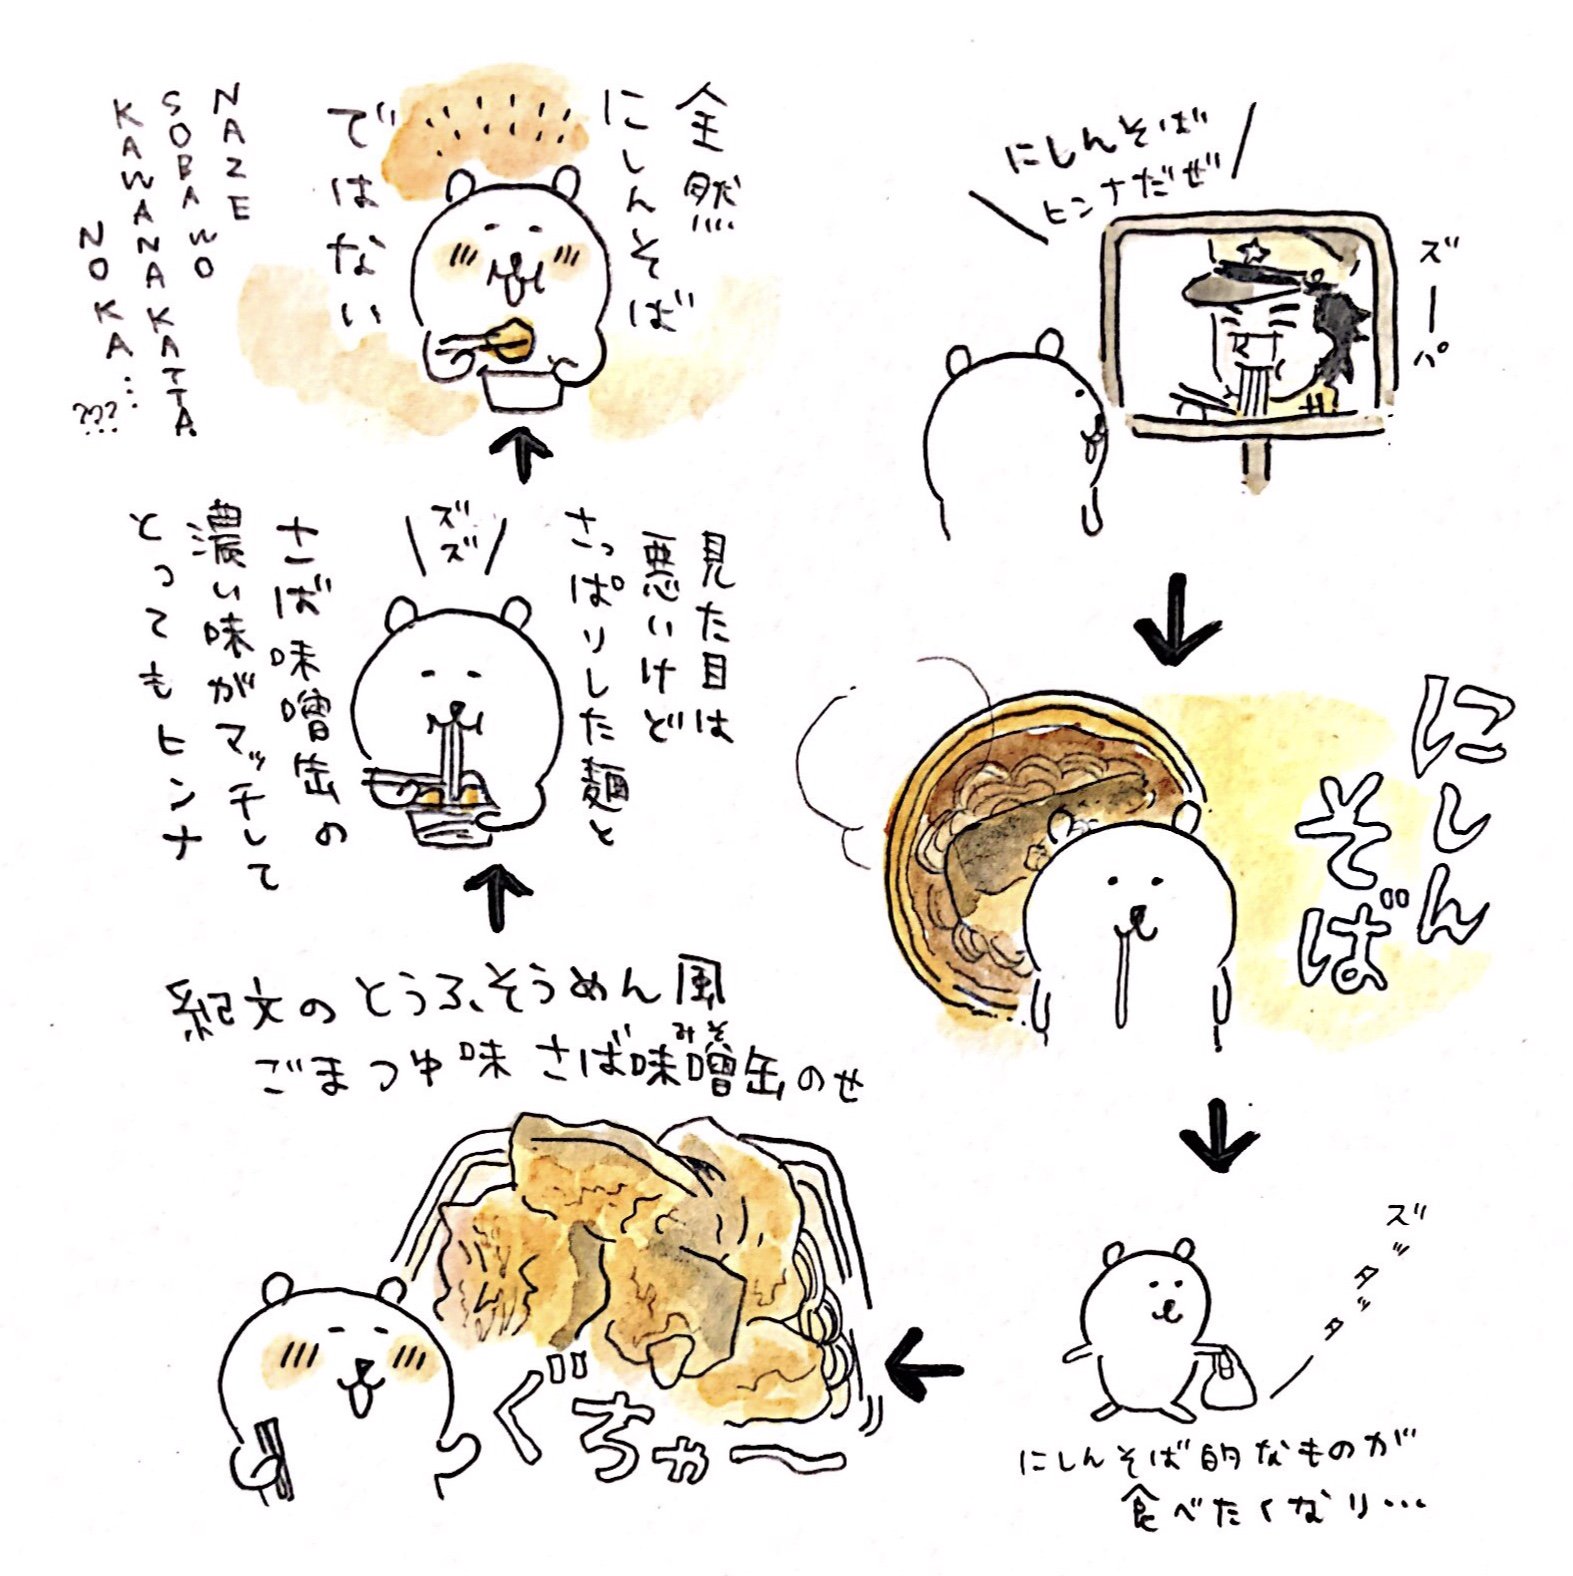 にしんそば
ヒンナだぜ
ズーパ
にしん
そば
ズッタッタ
にしんそば的なものが
食べたくなり…
紀文のとうふそうめん風
ごまつゆ味 さば味噌缶のせ
みそ
ぐちゃ〜
見た目は
悪いけど
さっぱりした麺と
ズズ
さば味噌缶の
濃い味がマッチして
とってもヒンナ
全然
にしんそば
ではない
NAZE
SOBA WO
KAWANAKATTA
NO KA...
???